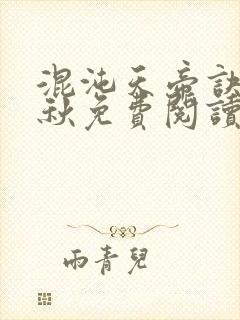 混沌天帝訣
秋免費閱讀
雨青兒